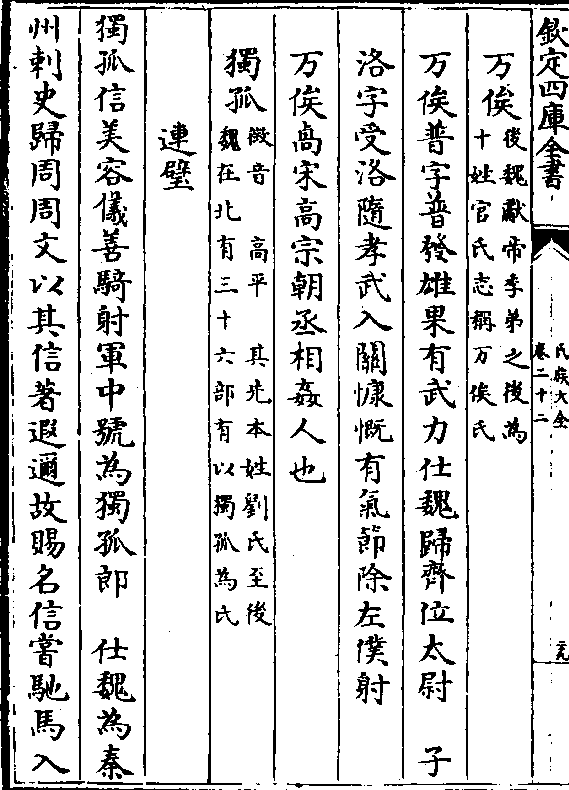 欽定四庫全書
氏族大全
卷二十二
元
万俟
後魏獻帝季弟之後為
十姓官氏志稱万俟氏
万俟普字普發雄果有武力仕魏歸齊位太尉　子
洛字受洛隨孝武入關慷慨有氣節除左僕射
万俟卨宋高宗朝丞相姦人也
獨孤
徴音　高平　其先本姓劉氏至後
魏在北有三十六部有以獨孤為氏
連璧
獨孤信美容儀善騎射軍中號為獨孤郎　仕魏為秦
州刺史歸周周文以其信著遐邇故賜名信嘗馳馬入